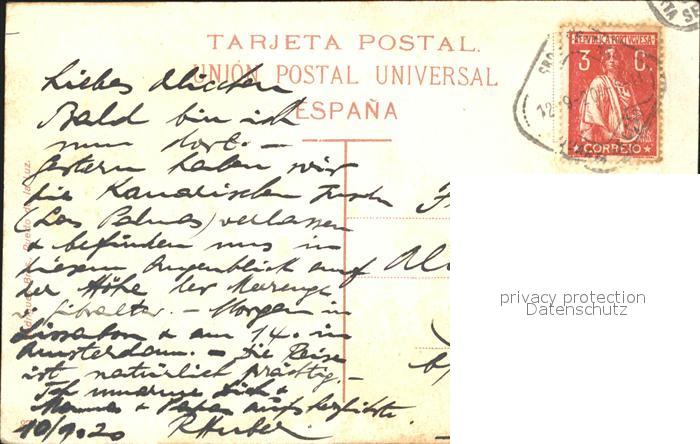 TARJETA POSTAL.
UNIÓN POSTAL UNIVERSAL
ESPAÑA
REPVBLICA PORTVGVESA
3 C.
CORREIO
12 9
Liebes
Bald bin ich
nun dort. —
Gestern haben wir
die Kanarischen Inseln
(Las Palmas) verlassen
& befinden uns in
diesem Augenblick auf
der Höhe der Meerenge
v. Gibraltar. — Morgen in
Lissabon & am 14. in
Amsterdam. — Die Reise
ist natürlich prächtig. —
Ich umarme Dich &
Mamma & Papa aufs herzlichste.
10/9.20 RHuber
privacy protection
Datenschutz